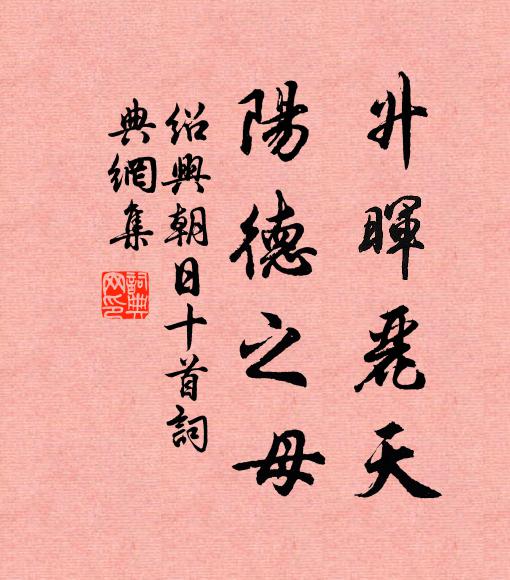 升暉麗天
陽德之母
紹興朝日十首詞
典網集
詞典
网印